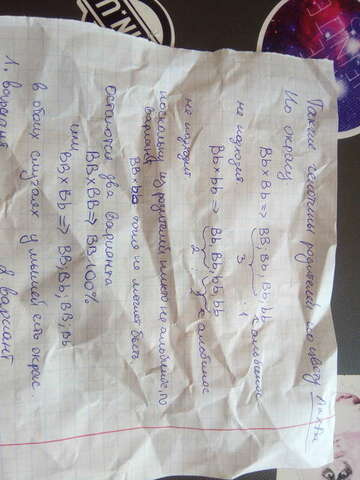 Такие генотипы родителей по цвету
По окрасу
Bb×Bb => BB, Bb, Bb, bb альбинос
3 : 1
не подходят
Bb×bb => Bb, Bb, bb, bb
2 : 2 альбинос
не подходит
поскольку из родителей никто не альбинос, то
вариант BB×bb тоже не может быть
Остаются два варианта
BB×BB => BB 100%
или
BB×Bb => BB; Bb; BB; Bb
в обоих случаях у мышей есть окрас.
1. вариант 2 вариант